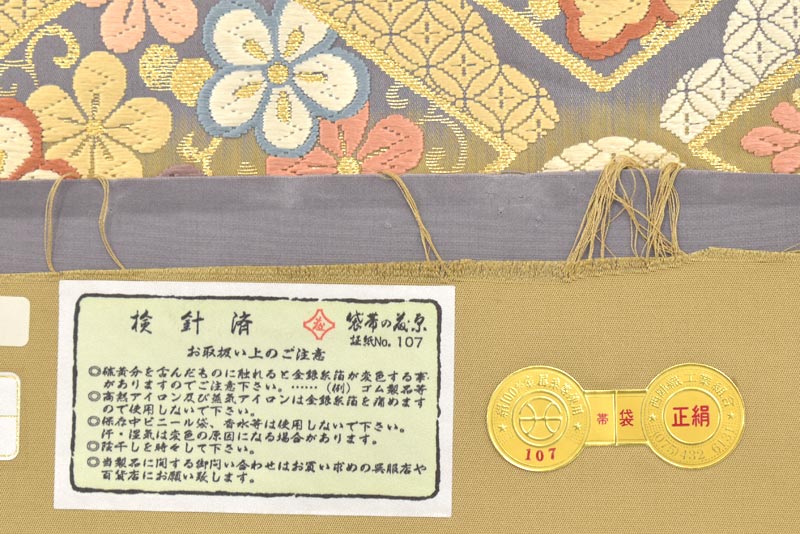 検針済
袋帯の藤原
証紙No. 107
お取扱い上のご注意
◎硫黄分を含んだものに触れると金銀糸箔が変色する事
がありますのでご注意下さい。……(例)ゴム製品等
◎高熱アイロン及び蒸気アイロンは金銀糸箔を痛めます
ので使用しないで下さい。
◎保存中ビニール袋、香水等は使用しないで下さい。
汗・湿気は変色の原因になる場合があります。
◎陰干しを時々して下さい。
◎当製品に関する御問い合わせはお買い求めの呉服店や
百貨店にお願い致します。
107
帯
袋
正絹